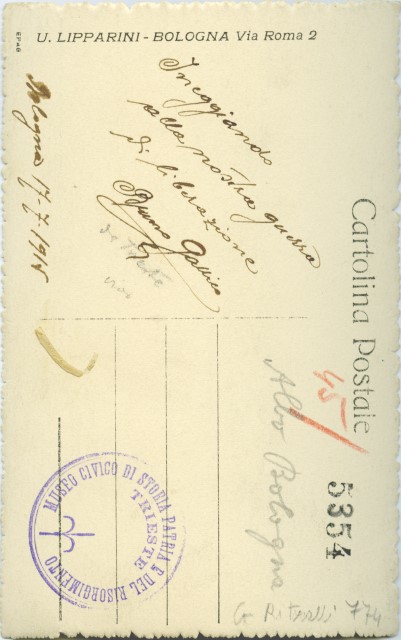 U. LIPPARINI - BOLOGNA Via Roma 2
Inneggiando
alla nostra guerra
di liberazione
Bruno
Bologna 17-7-1915
Cartolina Postale
45
5354
Albo Bologna
774
MUSEO CIVICO DI STORIA PATRIA E DEL RISORGIMENTO
TRIESTE